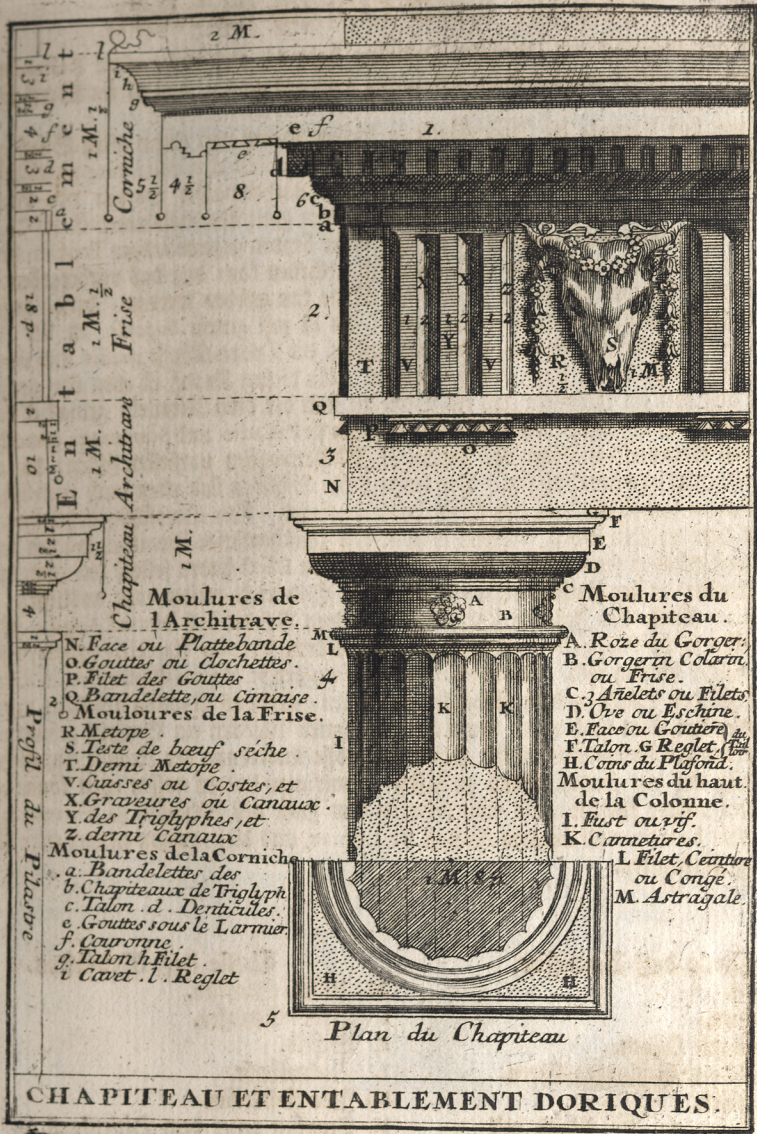 2 M.
Entablement
Corniche
1 M. 1/2
5 1/2
4 1/2
8
6
l
i
h
g
e f 1.
e
d
c
b
a
18 p.
1 M. 1/2
Frise
2.
X X Z
1 2 2 2 1 2
Y
T V V R 1/2 S 1 M
Q
P
O
3
N
10
1 M.
Architrave
Chapiteau
1 M.
G F
E
D
C
A B
M
L
4
K K
I
Moulures de
l'Architrave.
N. Face ou Plattebande
O. Gouttes ou Clochettes.
P. Filet des Gouttes
Q. Bandelette, ou Cimaise.
Mouloures de la Frise.
R. Metope.
S. Teste de bœuf séche.
T. Demi Metope.
V. Cuisses ou Costes, et
X. Graveures ou Canaux.
Y. des Triglyphes, et
Z. demi Canaux
Moulures de la Corniche
a. Bandelettes des
b. Chapiteaux de Triglyph
c. Talon. d. Denticules.
e. Gouttes sous le Larmier
f. Couronne.
g. Talon h Filet.
i Cavet. l. Reglet
Moulures du
Chapiteau.
A. Roze du Gorger:
B. Gorgerin Colarin,
ou Frise.
C. 3 Añelets ou Filets
D. Ove ou Eschine.
E. Face ou Goutiere
F. Talon. G Reglet.
H. Coins du Plafond.
Moulures du haut
de la Colonne.
I. Fust ou vif.
K. Cannetures.
L. Filet, Ceinture
ou Congé.
M. Astragale.
Profil du Pilastre
H H
5
Plan du Chapiteau
CHAPITEAU ET ENTABLEMENT DORIQUES.